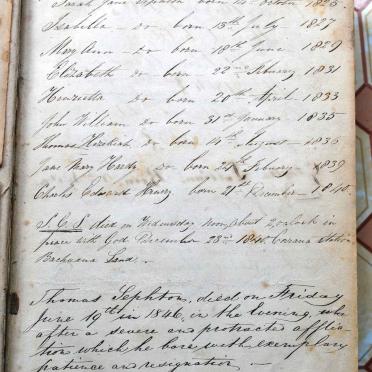 Sarah Jane Sephton born 14 October 1825
Isabella - do - born 15th July / 1827
Mary Ann - do - born 18th June / 1829
Elizabeth do - born - 22nd February / 1831
Henrietta do born 20th April / 1833
John William - do - born 31st January / 1835
Thomas Hezekiah do - born 4th August - 1836
Jane Mary do - born February 1839
Charles Edward Henry born 21st December - 1840.
S. G. S. died on Wednesday Noon, about 2,o,clock in
peace with God December 23rd Station
Land. -
Thomas Sephton, died on Friday
June 19th in 1846, in the Evening, 
after a severe and protracted afflic-
tion which he bore with exemplary
patience and resignation -